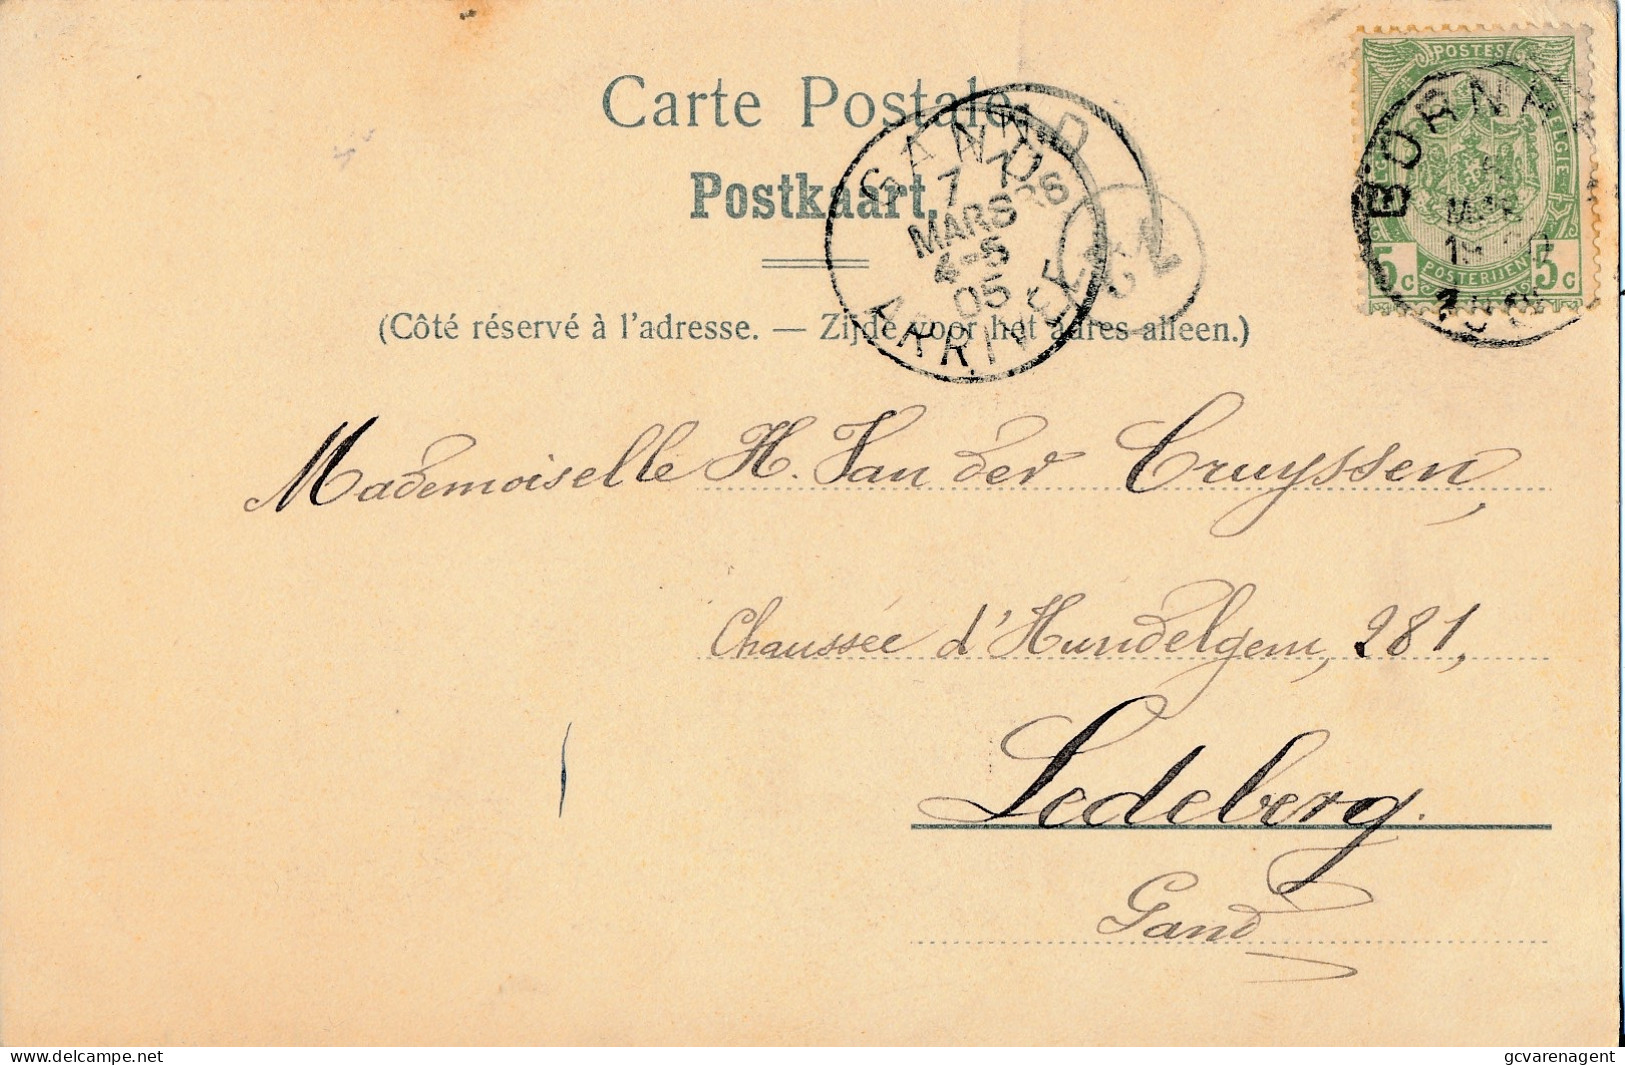 Carte Postale.
Postkaart.
(Côté réservé à l'adresse. — Zijde voor het adres alleen.)
GAND
7
MARS
4-5
05
ARRIVEE
POSTES
BELGIE
5c POSTERIJEN 5c
BORNH
Mademoiselle H. Van der Cruyssen,
Chaussée d'Hundelgem, 281,
Ledeberg.
Gand
www.delcampe.net
gcvarenagent